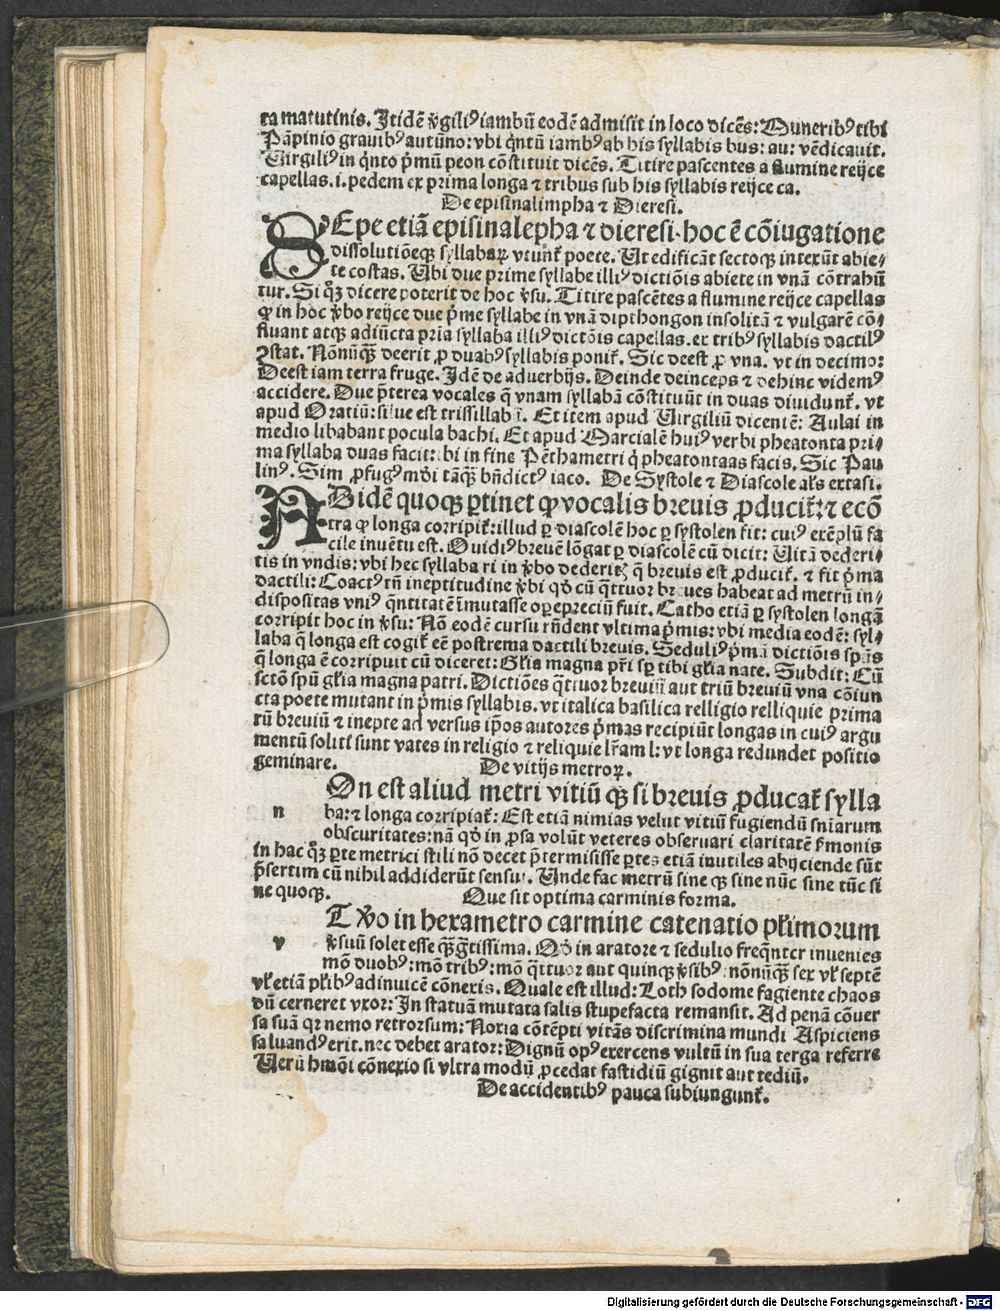 ta matutinis. Itidē v̄giliꝰ iambū eodē admisit in loco dicēs: Muneribꝰ tibi
Pāpinio grauibꝰ autūno: vbi q̄ntū iambꝰ ab his syllabis bus: au: vēdicauit.
Virgiliꝰ in q̄nto p̄mū peon cōstituit dicēs. Titire pascentes a flumine reijce
capellas. i. pedem ex prima longa ⁊ tribus sub his syllabis reijce ca.
De episinalimpha ⁊ Dieresi.
SEpe etiā episinalepha ⁊ dieresi. hoc ē cōiugatione
dissolutiōeqꝫ syllabaꝝ vtunt᷑ poete. Ut edificāt sectoqꝫ intexūt abie-
te costas. Ubi due prime syllabe illiꝰ dictiōis abiete in vnā cōtrahū
tur. Si qꝫ dicere poterit de hoc v̄su. Titire pascētes a flumine reijce capellas
ꝙ in hoc v̄bo reijce due p̄me syllabe in vnā dipthongon insolitā ⁊ vulgarē cō-
fluant atqꝫ adiūcta p̄ria syllaba illiꝰ dictōis capellas. ex tribꝰ syllabis dactilꝰ
ꝯstat. Nōnūqꝫ̄ deerit ꝓ duabꝰ syllabis ponit᷑. Sic deest ꝓ vna. vt in decimo:
Deest iam terra fruge. Idē de aduerbijs. Deinde deinceps ⁊ dehinc videmꝰ
accidere. Due p̄terea vocales q̄ vnam syllabā cōstituūt in duas diuidunt᷑. vt
apud Oratiū: silue est trissillabū. Et item apud Virgiliū dicentē: Aulai in
medio libabant pocula bachi. Et apud Marcialē huiꝰ verbi pheatonta pri-
ma syllaba duas facit: vbi in fine Pēthametri q̇ pheatontaas facis. Sic Pau
linꝰ. Sim ꝓfugꝰ mōi tāqꝫ̄ bn̄dictꝰ iaco. De Systole ⁊ Diascole al̓s extasi.
AD idē quoqꝫ ꝑtinet ꝙ vocalis breuis ꝓducit᷑: ⁊ ecō
tra ꝙ longa corripit᷑: illud ꝑ diascolē hoc ꝑ systolen fit: cuiꝰ exēplū fa
cile inuētu est. Ouidiꝰ breuē lōgat ꝑ diascolē cū dicit: Uitā dederi-
tis in vndis: vbi hec syllaba ri in v̄bo dederitꝭ q̄ breuis est ꝓducit᷑. ⁊ fit p̄ma
dactili: Coactꝰ tn̄ ineptitudine v̄bi qḋ cū q̄ttuor breues habeat ad metrū in-
dispositas vniꝰ q̄ntitatē īmutasse oꝑepreciū fuit. Catho etiā ꝑ systolen longā
corripit hoc in v̄su: Nō eodē cursu rn̄dent vltima p̄mis: vbi media eodē: syl-
laba q̄ longa est cogit᷑ eē postrema dactili breuis. Seduliꝰ p̄mā dictiōis spūs
q̄ longa ē corripuit cū diceret: Gl̓ia magna pr̄i sꝑ tibi gl̓ia nate. Subdit: Cū
sctō spū gl̓ia magna patri. Dictiōes q̄ttuor breuiū aut triū breuiū vna cōiun
cta poete mutant in p̄mis syllabis. vt italica basilica relligio relliquie prima
rū breuiū ⁊ inepte ad versus ip̄os autores p̄mas recipiūt longas in cuiꝰ argu
mentū soliti sunt vates in religio ⁊ reliquie lr̄am l: vt longa redundet positio
geminare. De vitijs metroꝝ.
On est aliud metri vitiū qꝫ̄ si breuis ꝓducat᷑ sylla
n ba: ⁊ longa corripiat᷑: Est etiā nimias velut vitiū fugiendū sn̄iarum
obscuritates: nā qḋ in ꝓsa volūt veteres obseruari claritatē s̄monis
in hac qꝫ ꝑte metrici stili nō decet p̄termisisse ꝑtes etiā inutiles abijciende sūt
p̄sertim cū nihil addiderūt sensui. Unde fac metrū sine qꝫ sine nūc sine tūc si
ne quoqꝫ. Que sit optima carminis forma.
T v̄o in hexametro carmine catenatio pl̓imorum
v v̄suū solet esse qꝫ̄ gr̄tissima. Qḋ in aratore ⁊ sedulio freq̄nter inuenies
mō duobꝰ: mō tribꝰ: mō q̄ttuor aut quinqꝫ v̄sibꝰ: nōnūqꝫ̄ sex vl̓ septē
vl̓ etiā pl̓ibꝰ adinuicē cōnexis. Quale est illud: Loth sodome fugiente chaos
dū cerneret vxor: In statuā mutata salis stupefacta remansit. Ad penā cōuer
sa suā qꝛ nemo retrorsum: Noxia cōtēpti vitās discrimina mundi Aspiciens
saluandꝰ erit. nec debet arator: Dignū opꝰ exercens vultū in sua terga referre
Uerū hmōi cōnexio si vltra modū ꝓcedat fastidiū gignit aut tediū.
De accidentibꝰ pauca subiungunt᷑.
Digitalisierung gefördert durch die Deutsche Forschungsgemeinschaft - DFG